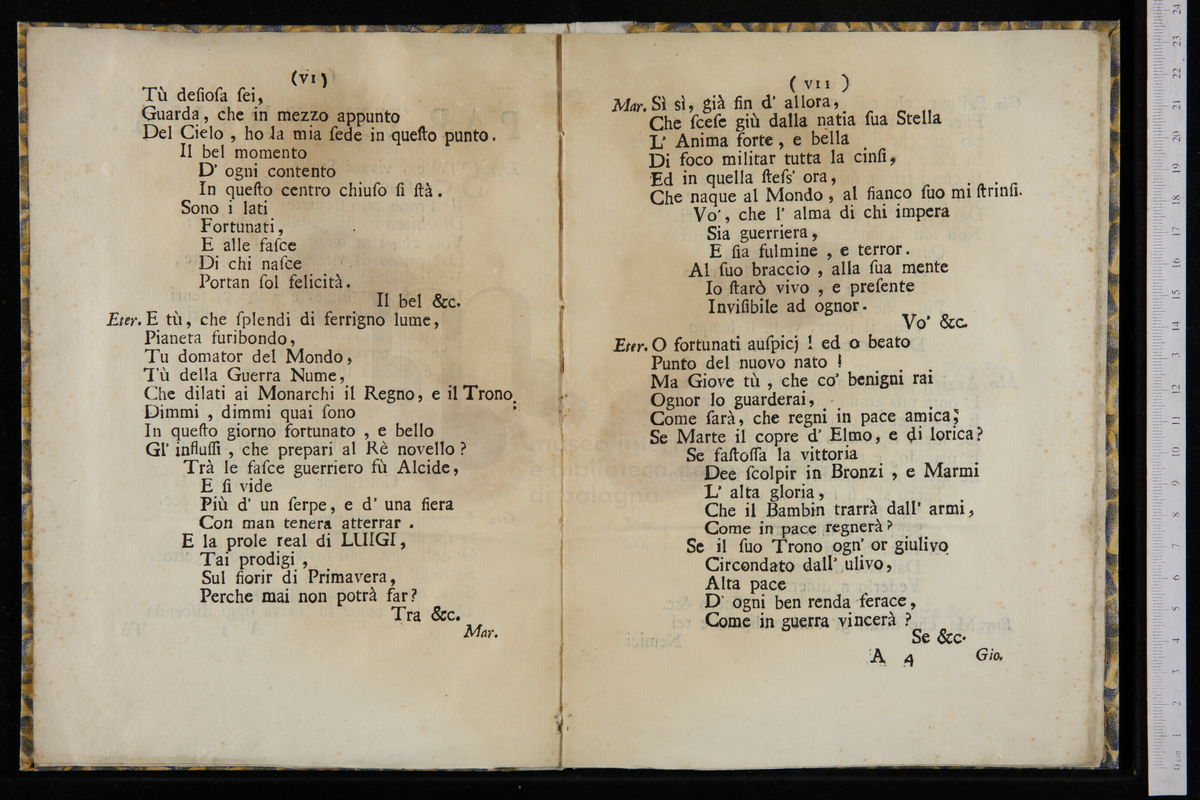 (VI)
Tù deſioſa ſei,
Guarda, che in mezzo appunto
Del Cielo, ho la mia ſede in queſto punto.
Il bel momento
D' ogni contento
In queſto centro chiuſo ſi ſtà.
Sono i lati
Fortunati,
E alle faſce
Di chi naſce
Portan ſol felicità.
Il bel &c.
Eter. E tù, che ſplendi di ferrigno lume,
Pianeta furibondo,
Tu domator del Mondo,
Tù della Guerra Nume,
Che dilati ai Monarchi il Regno, e il Trono:
Dimmi, dimmi quai ſono
In queſto giorno fortunato, e bello
Gl' influſſi, che prepari al Rè novello?
Trà le faſce guerriero fù Alcide,
E ſi vide
Più d' un ſerpe, e d' una fiera
Con man tenera atterrar.
E la prole real di LUIGI,
Tai prodigi,
Sul fiorir di Primavera,
Perche mai non potrà far?
Tra &c.
Mar.
(VII)
Mar. Sì sì, già fin d' allora,
Che ſceſe giù dalla natia ſua Stella
L' Anima forte, e bella
Di foco militar tutta la cinſi,
Ed in quella ſteſs' ora,
Che naque al Mondo, al fianco ſuo mi ſtrinſi.
Vo', che l' alma di chi impera
Sia guerriera,
E ſia fulmine, e terror.
Al ſuo braccio, alla ſua mente
Io ſtarò vivo, e preſente
Inviſibile ad ognor.
Vo' &c.
Eter. O fortunati auſpicj! ed o beato
Punto del nuovo nato!
Ma Giove tù, che co' benigni rai
Ognor lo guarderai,
Come ſarà, che regni in pace amica;
Se Marte il copre d' Elmo, e di lorica?
Se faſtoſſa la vittoria
Dee ſcolpir in Bronzi, e Marmi
L' alta gloria,
Che il Bambin trarrà dall' armi,
Come in pace regnerà?
Se il ſuo Trono ogn' or giulivo
Circondato dall' ulivo,
Alta pace
D' ogni ben renda ferace,
Come in guerra vincerà?
Se &c.
A 4 Gio.